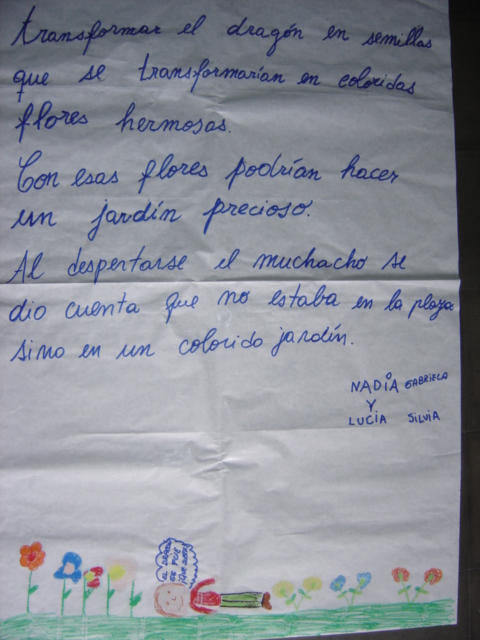 transformar el dragón en semillas
que se transformarían en coloridas
flores hermosas.
Con esas flores podrían hacer
un jardín precioso.
Al despertarse el muchacho se
dio cuenta que no estaba en la plaza
sino en un colorido jardín.
NADIA GABRIELA
Y
LUCIA SILVIA
EL
SE FUE